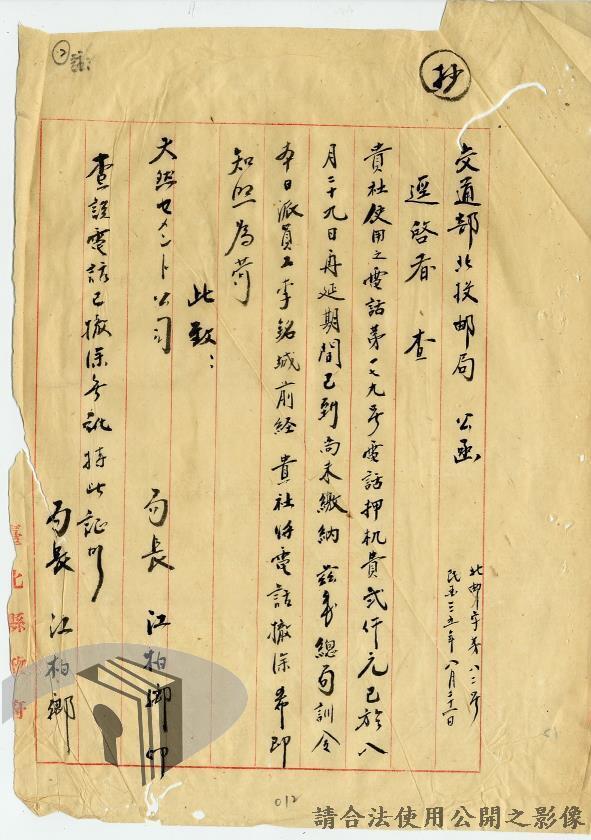 抄
交通部北投郵局 公函
北郵字第八二号
民国三五年八月二十二日
逕啓者、查
貴社使用之電話第一七九号電話押机費弍仟元已於八
月二十九日再延期間已到尚未繳納 茲我總局訓令
本日派員工李銘城前経 貴社將電話撤除希即
知照為荷
此致:
大然セメント公司
局長 江柏鄉 印
查該電話已撤除無訛特此証明
局長 江柏鄉
臺北縣政府
012
請合法使用公開之影像